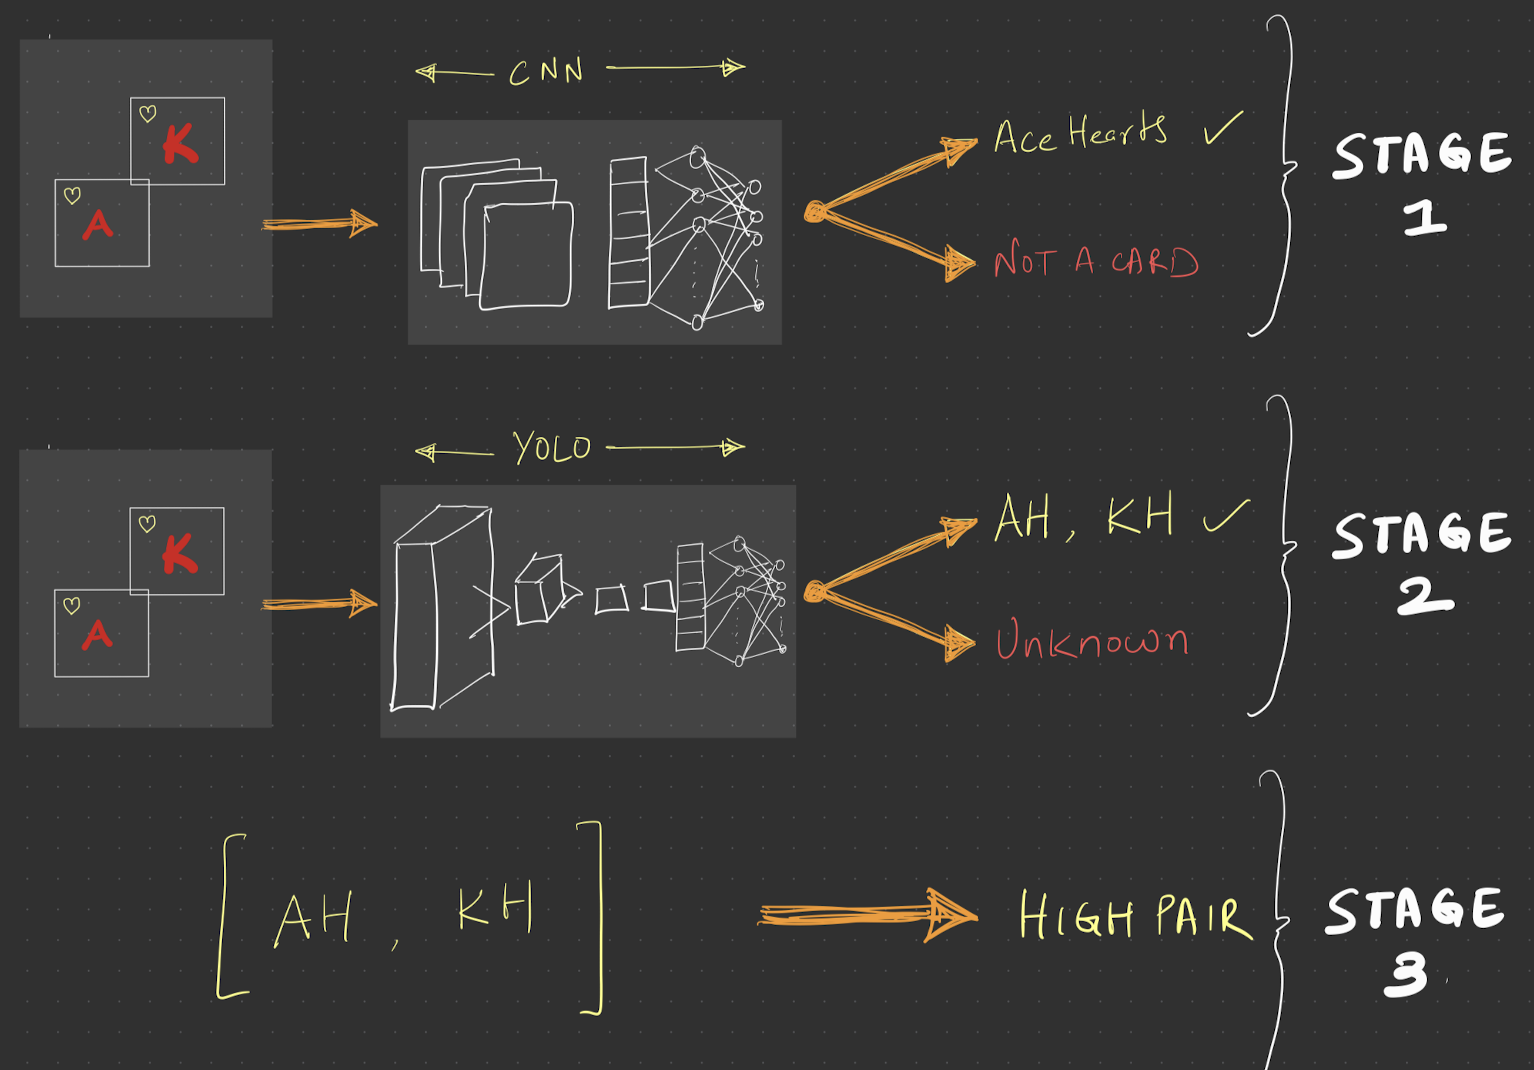 ♡
K
♡
A
CNN
Ace Hearts ✓
NOT A CARD
STAGE
1
♡
K
♡
A
YOLO
AH, KH ✓
Unknown
STAGE
2
[AH, KH]
HIGH PAIR
STAGE
3